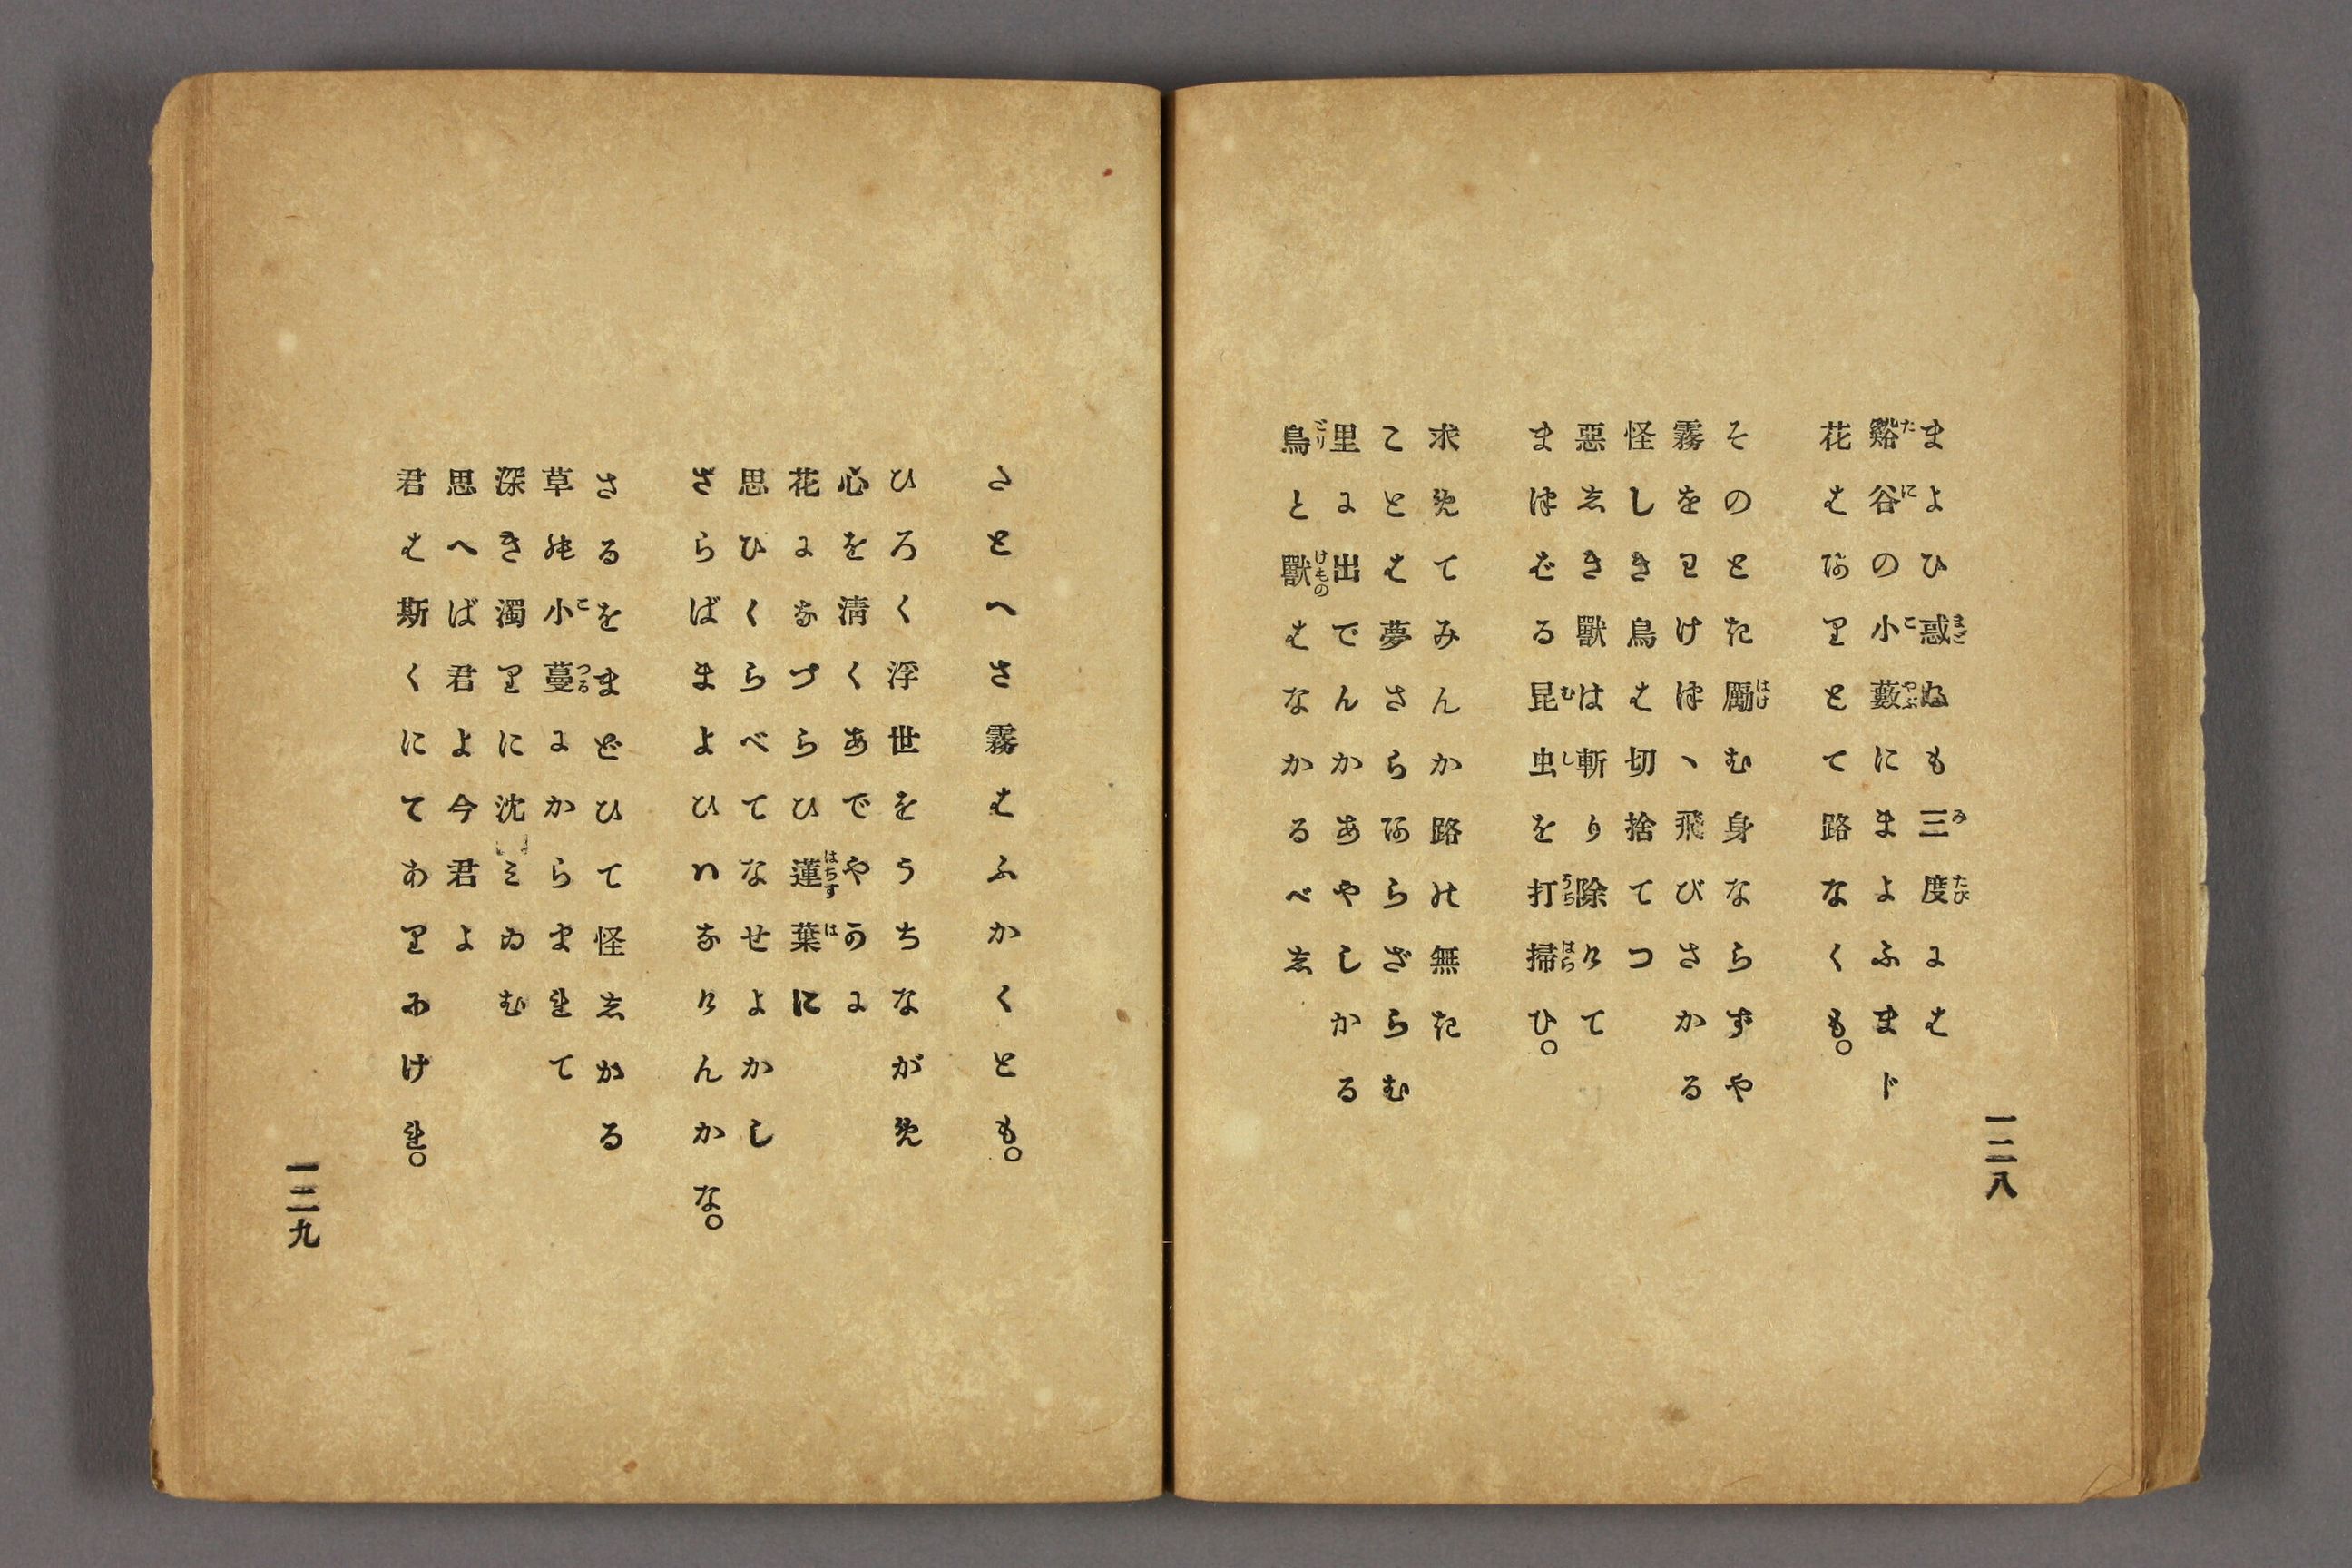 まよひ惑ぬも三度には
谿谷の小藪にまよふまじ
花はありとて路なくも。
そのとき勵む身ならずや
霧をわけつゝ飛びさかる
怪しき鳥は切捨てつ
惡しき獸は斬り除けて
まつばる昆虫を打掃ひ。
求めてみんか路の無き
ことは夢さらあらざらむ
里に出でんかあやしかる
鳥と獸はなかるべし
一二八
さとへさ霧はふかくとも。
ひろく浮世をうちながめ
心を清くあでやかに
花になづらひ蓮葉に
思ひくらべてなせよかし
さらばまよひはなけんかな。
さるをまどひて怪しかる
草の小蔓にからまれて
深き濁りに沈みゐむ
思へば君よ今君よ
君は斯くにてありにけれ。
一二九